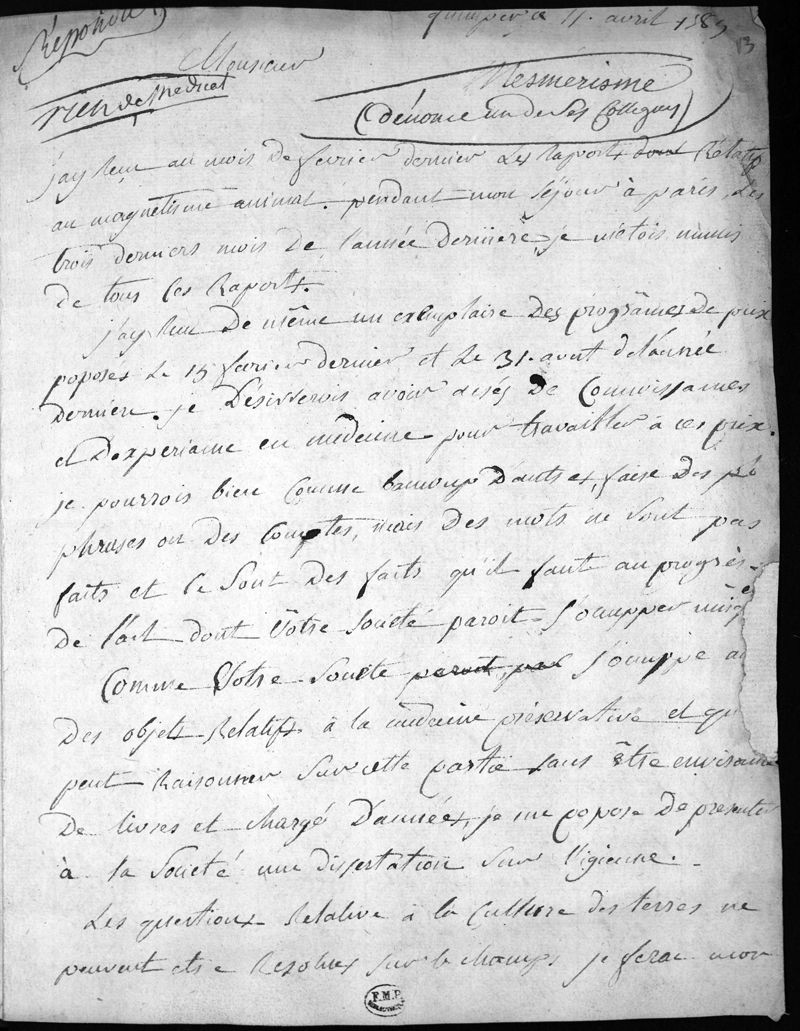 Répondu
quimper ce 11. avril 1785
13
Monsieur
rien de Medical
Mesmérisme
(dénonce un de ses Collegues)
j'ay Reçu au mois De fevrier dernier Les Raports dont Rélatifs
au magnetisme animal. pendant mon séjour à paris, Les
trois derniers mois De L'année Dernière, je m'étois munis
De tous Ces Raports.
j'ay Reçu De même un exemplaire Des progrâmes De prix
poposés Le 15 fevrier dernier et Le 31. aout de L'année
Derniere. je Désirerois avoir assés De Connoissances
et D'experiance en medecine pour travailler à ces prix.
je pourrois bien Comme beaucoup D'autres, faire Des
phrases ou Des Comptes, mais Des mots ne sont pas
faits et Ce sont Des faits qu'il faut au progrès
De L'art dont Vôtre Société paroit s'occupper
Comme Vôtre Société paroit pas s'occuppe
Des objets Relatifs à la medecine préservative et
peut Raisonner sur cette partie sans être environné
De Livres et chargé D'années, je me popose De presenter
à la Société une Dissertation sur l'igienne.
Les questions Relative à la Culture des terres ne
peuvent etre Resolues sur le champ, je ferai mon
F.M.P.